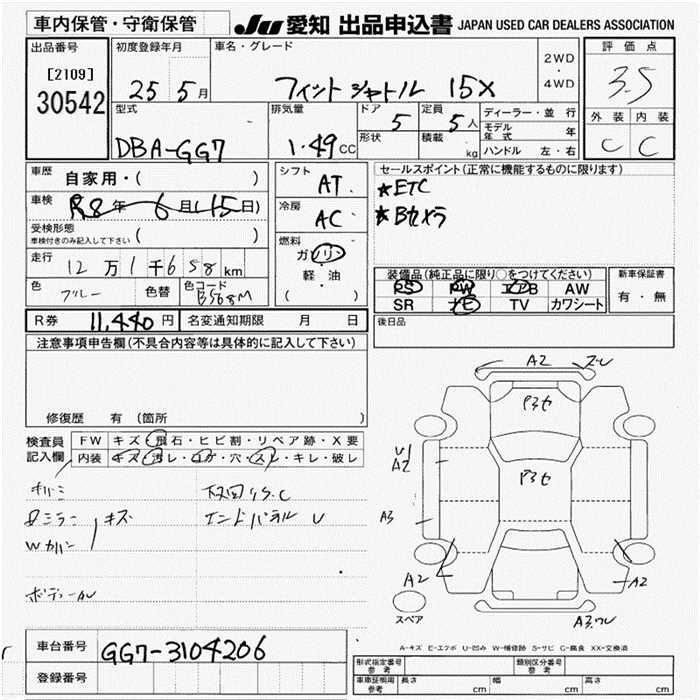 車内保管・守衛保管 JU 愛知 出品申込書 JAPAN USED CAR DEALERS ASSOCIATION
出品番号 初度登録年月 車名・グレード 2WD ・ 4WD 評価点
[2109]
30542 25 5月 フィットシャトル 15X 3.5
型式 排気量 ドア 定員 ディーラー・並行 外装 内装
DBA-GG7 1.49CC 5 5人 モデル年式 年 C C
形状 積載 kg ハンドル 左・右
車歴 自家用・( ) シフト AT セールスポイント(正常に機能するものに限ります)
車検 R8年 6月(15日) 冷房 AC ★ETC
受検形態 ( ) ★Bカメラ
車検付きのみ記入して下さい
走行 12万1千658km 燃料 ガソリン・軽・油 ( )
色 ブルー 色替 色コード B568M
装備品(純正品に限り○をつけてください) 新車保証書
PS PW エアB AW 有・無
SR ナビ TV カワシート
R券 11,440円 名変通知期限 月 日 後日品
注意事項申告欄(不具合内容等は具体的に記入して下さい)
修復歴 有 (箇所 )
検査員記入欄 FW キズ・飛石・ヒビ割・リペア跡・X要
内装 キズ・汚レ・コゲ・穴・スレ・キレ・破レ
キズ
Wカバー
エンドパネル U
A2
U1
A2
A3
A2
A2
スペア
A-キズ E-エクボ U-凹み W-補修跡 S-サビ C-腐食 XX-交換済
車台番号 GG7-3104206
登録番号
形式指定番号 参考 類別区分番号 参考
車車証明用 参考 長さ cm 幅 cm 高さ cm